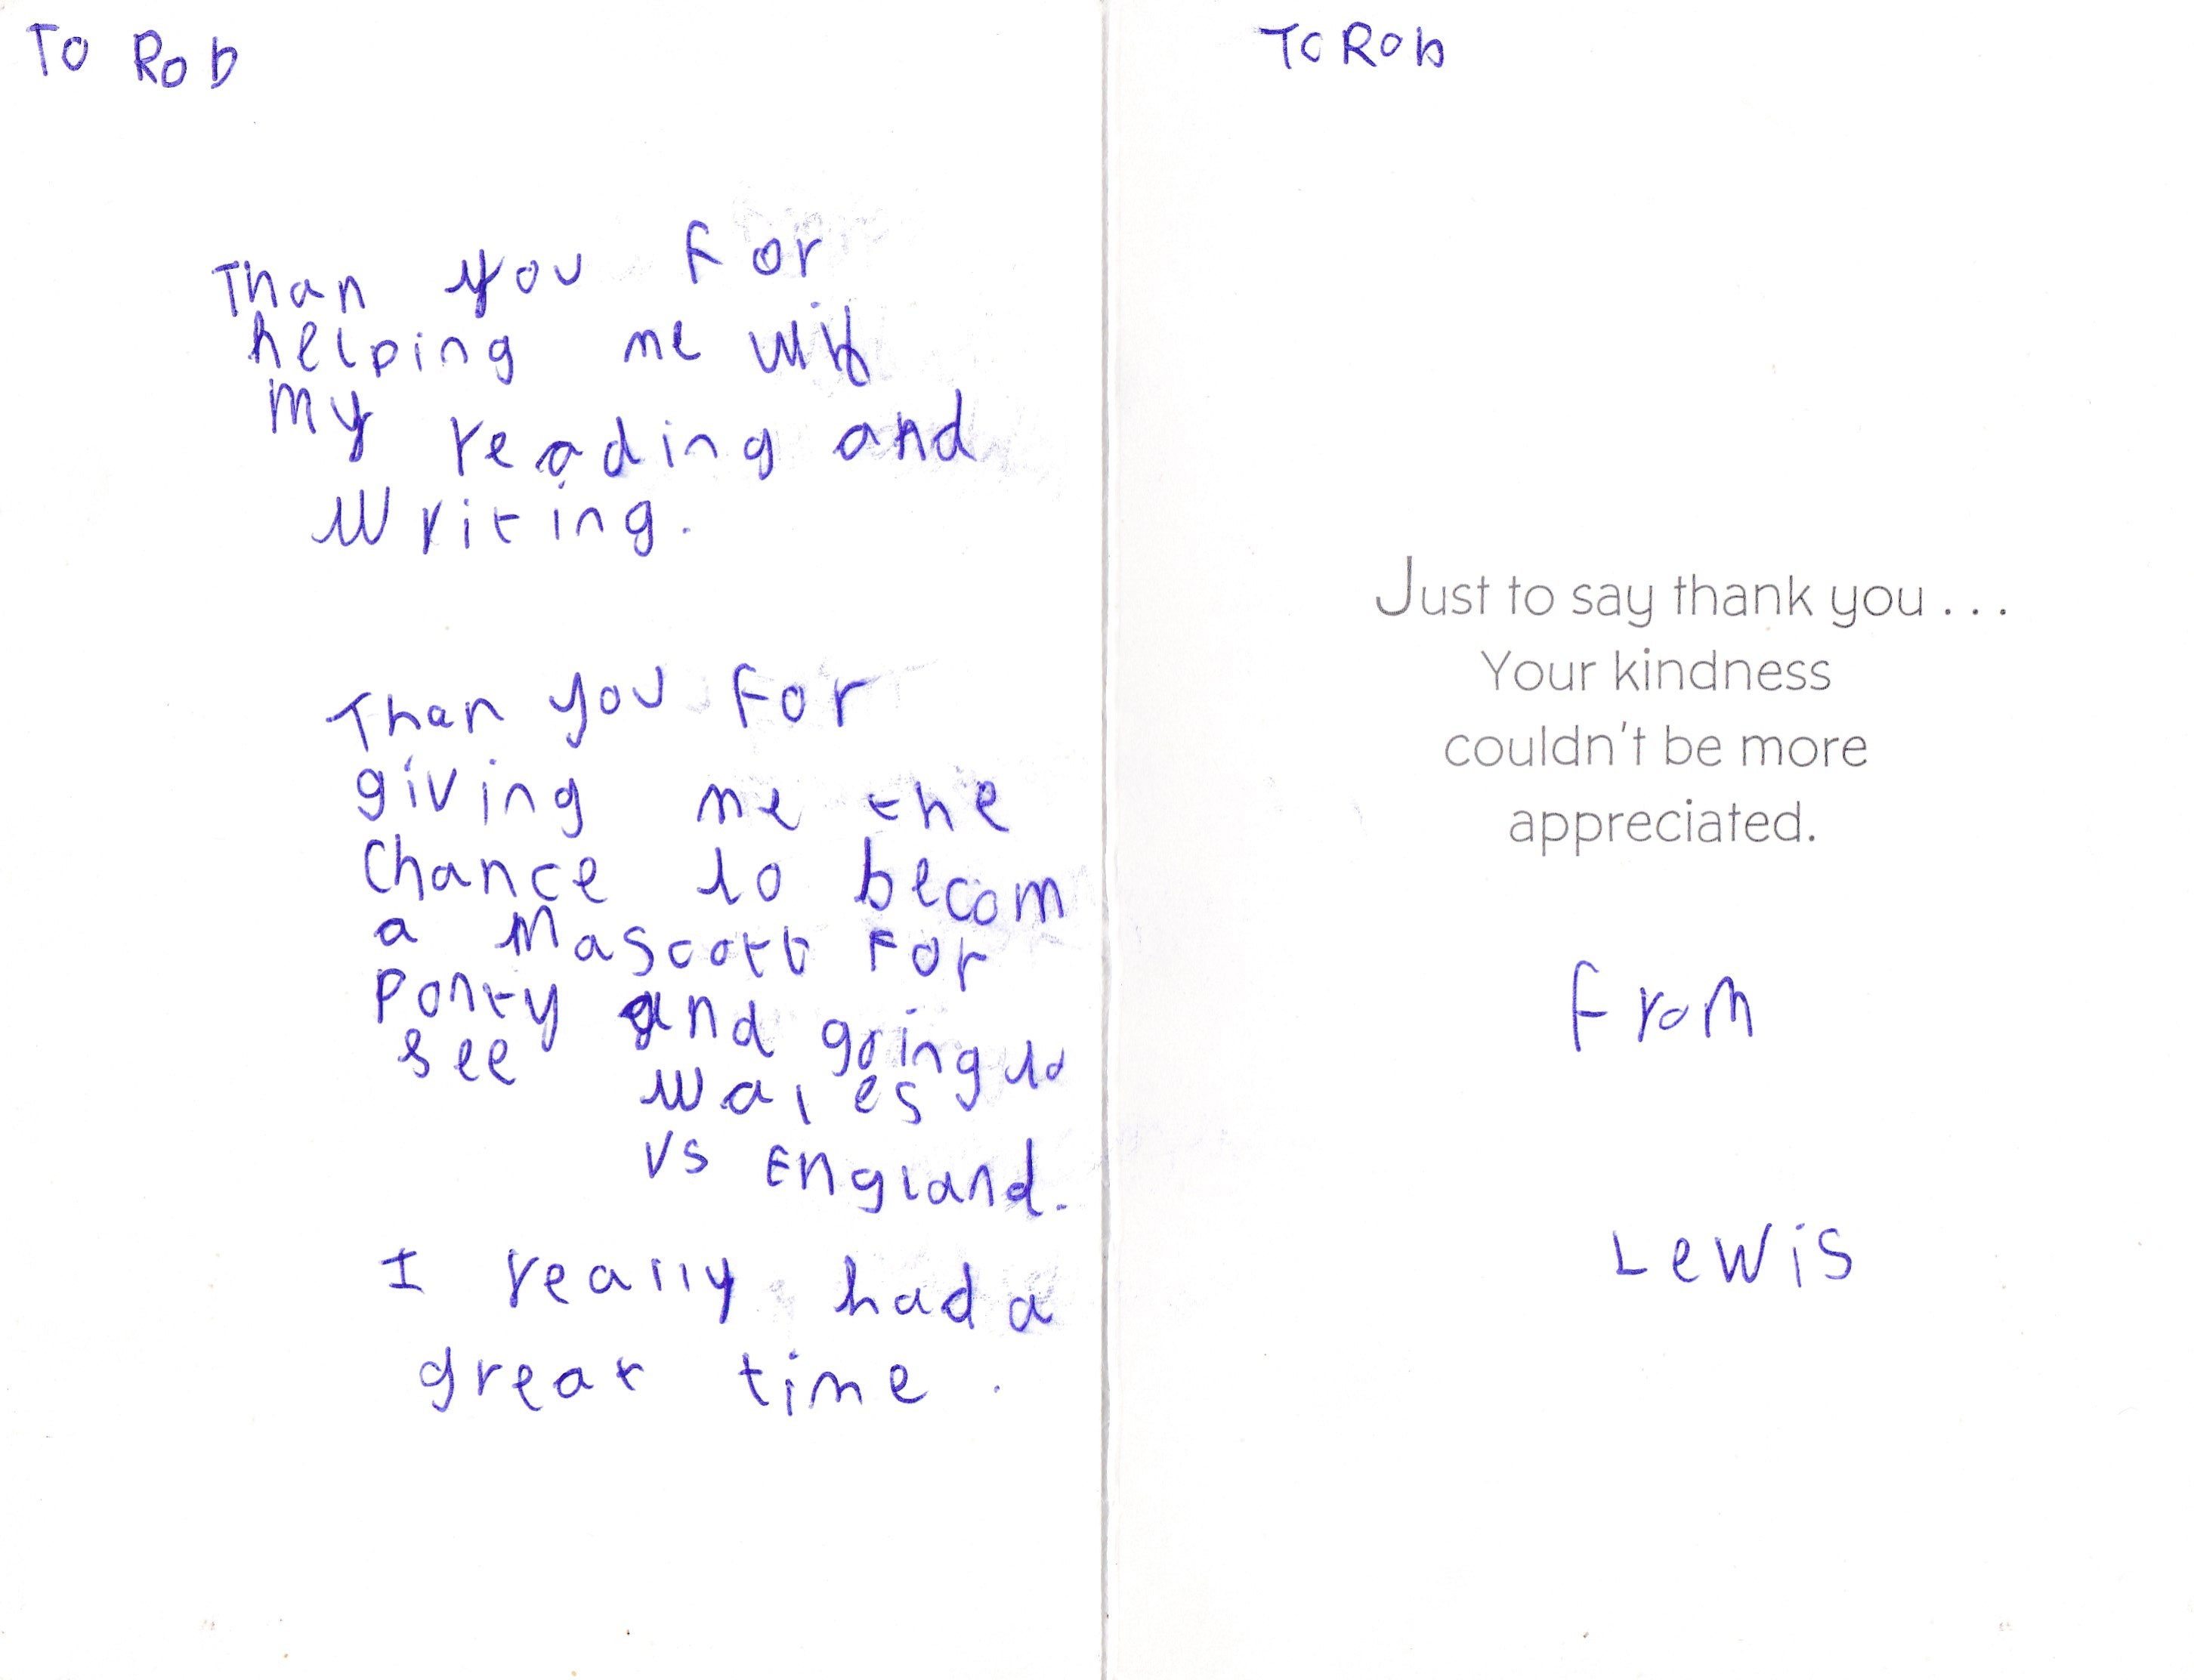 To Rob
Than you for
helping me wif
my reading and
writing.
Than you for
giving me the
Chance to becom
a Mascott For
Ponty and going to
see Wales
vs England.
I really had a
great time .
To Rob
Just to say thank you . . .
Your kindness
couldn't be more
appreciated.
From
Lewis